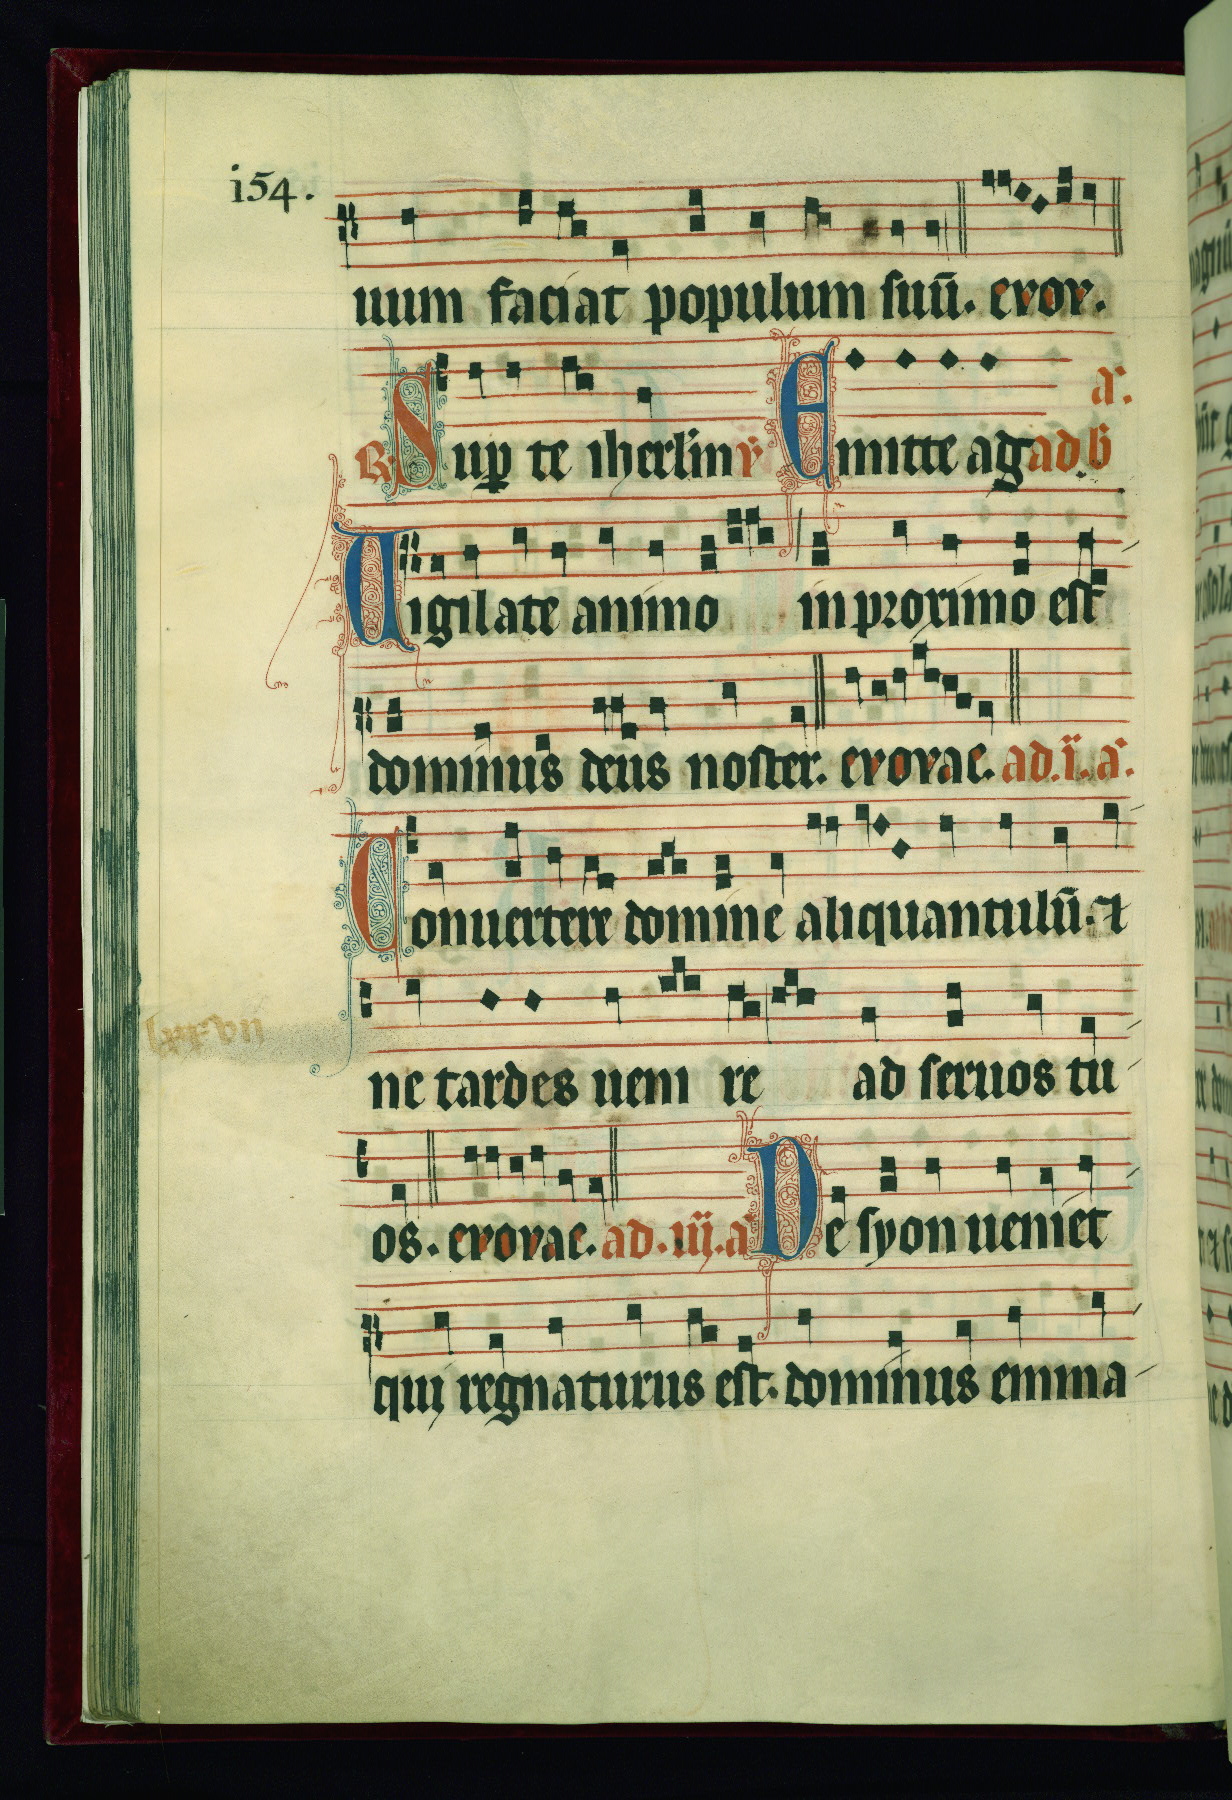 i54.
uum faciat populum suū. evov.
a.
R Sup te iherl'm v Emitte ag ad b
Uigilate animo in proximo est
dominus deus noster. evovae. ad. i. a.
Conuertere domine aliquantulū. et
ne tardes ueni re ad seruos tu
os. evovae. ad. iij. a De syon ueniet
qui regnaturus est. dominus emma